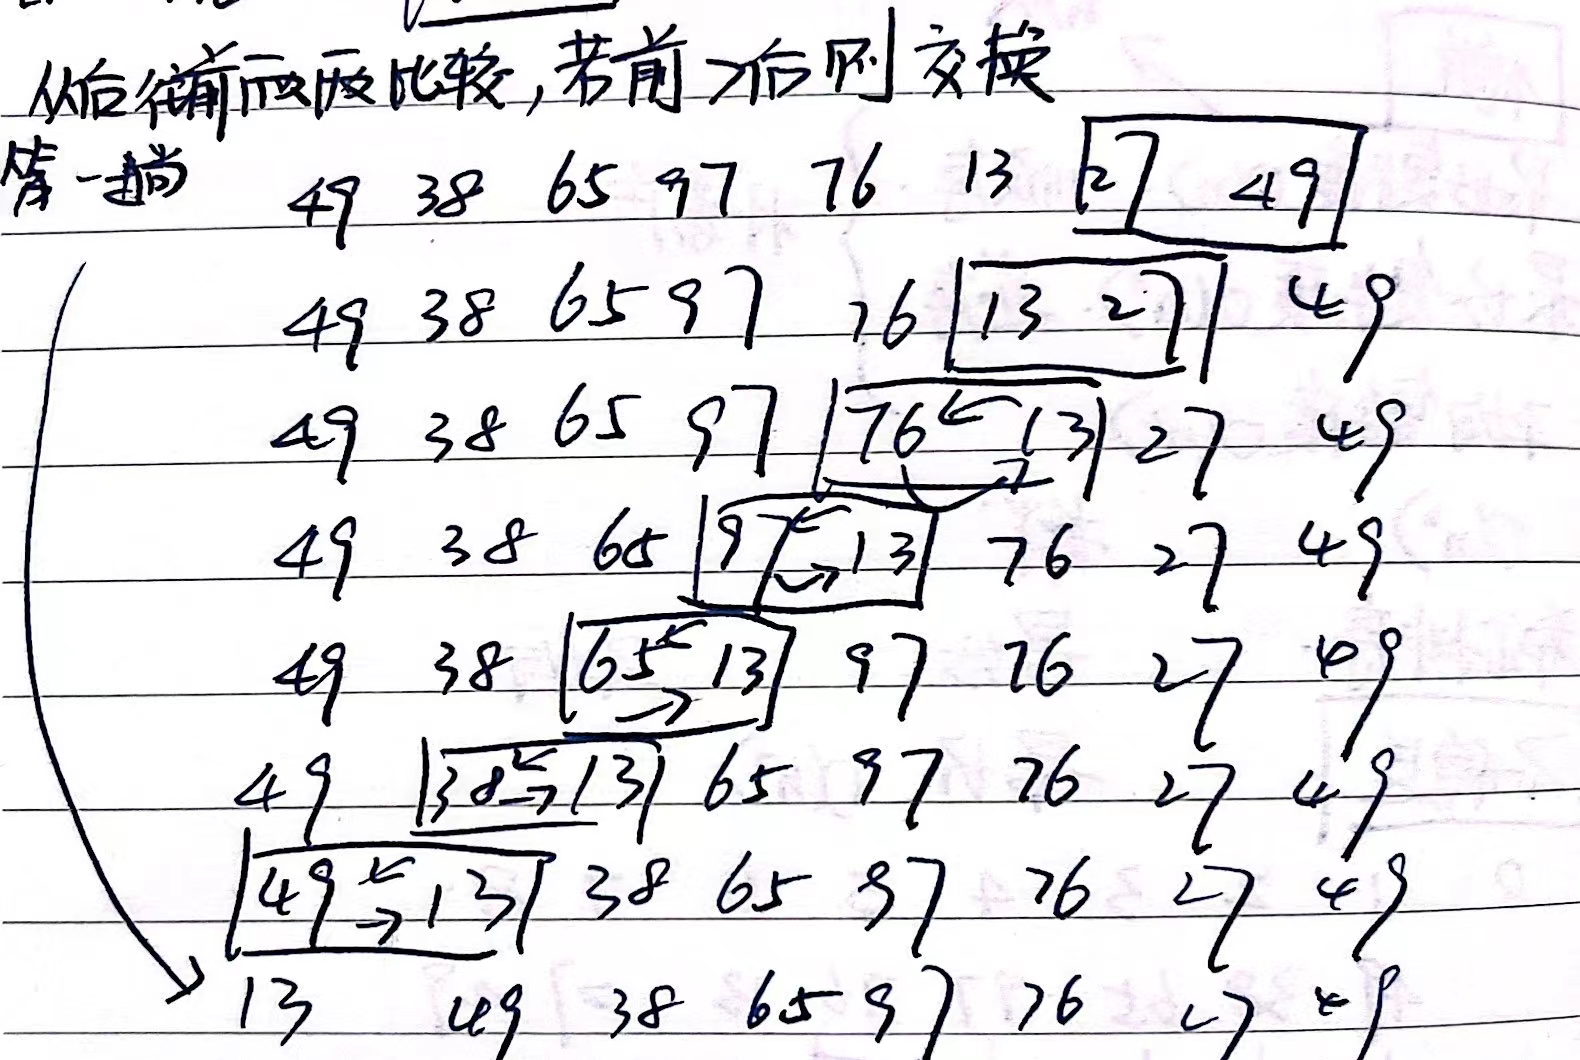 从后往前两两比较,若前>后则交换
第一趟 49 38 65 97 76 13 27 49
49 38 65 97 76 13 27 49
49 38 65 97 76 13 27 49
49 38 65 97 13 76 27 49
49 38 65 13 97 76 27 49
49 38 13 65 97 76 27 49
49 13 38 65 97 76 27 49
13 49 38 65 97 76 27 49